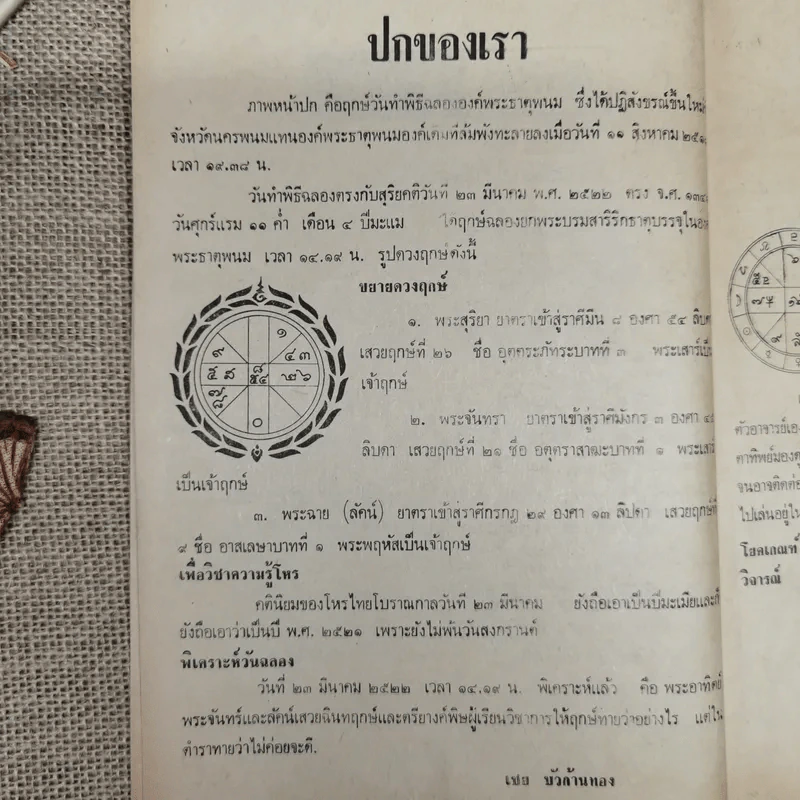 ปกของเรา
ภาพหน้าปก คือฤกษ์วันทำพิธีฉลององค์พระธาตุพนม ซึ่งได้ปฏิสังขรณ์ขึ้นใหม่
จังหวัดนครพนมแทนองค์พระธาตุพนมองค์เดิมที่ล้มพังทะลายลงเมื่อวันที่ ๑๑ สิงหาคม
เวลา ๑๙.๓๘ น.
วันทำพิธีฉลองตรงกับสุริยคติวันที่ ๒๓ มีนาคม พ.ศ. ๒๕๒๒ ตรง จ.ศ.
วันศุกร์แรม ๑๑ ค่ำ เดือน ๔ ปีมะแม ได้ฤกษ์ฉลองยกพระบรมสารีริกธาตุบรรจุใน
พระธาตุพนม เวลา ๑๔.๑๙ น. รูปดวงฤกษ์ดังนี้
ขยายดวงฤกษ์
๑. พระสุริยา ยาตราเข้าสู่ราศีมีน ๘ องศา ๕๔ ลิบดา
เสวยฤกษ์ที่ ๒๖ ชื่อ อุตตระภัทระบาทที่ ๓ พระเสาร์เป็น
เจ้าฤกษ์
๒. พระจันทรา ยาตราเข้าสู่ราศีมังกร ๓ องศา
ลิบดา เสวยฤกษ์ที่ ๒๑ ชื่อ อุตตราสาฒะบาทที่ ๑ พระเสาร์
เป็นเจ้าฤกษ์
๓. พระฉาย (ลัคน์) ยาตราเข้าสู่ราศีกรกฎ ๒๙ องศา ๑๓ ลิปดา เสวยฤกษ์ที่
๙ ชื่อ อาสเลษาบาทที่ ๑ พระพฤหัสเป็นเจ้าฤกษ์
เพื่อวิชาความรู้โหร
คตินิยมของโหรไทยโบราณกาลวันที่ ๒๓ มีนาคม ยังถือเอาเป็นปีมะเมียและก็
ยังถือเอาว่าเป็นปี พ.ศ. ๒๕๒๑ เพราะยังไม่พ้นวันสงกรานต์
พิเคราะห์วันฉลอง
วันที่ ๒๓ มีนาคม ๒๕๒๒ เวลา ๑๔.๑๙ น. พิเคราะห์แล้ว คือ พระอาทิตย์
พระจันทร์และลัคน์เสวยฉินทฤกษ์และตรียางค์พิษผู้เรียนวิชาการให้ฤกษ์ทายว่าอย่างไร แต่ใน
ตำราทายว่าไม่ค่อยจะดี.
เชย บัวก้านทอง
๑
๙
๔ ๓
๕ ส
๘
๒ ๖
๗
๘
๐
ตัวอาจารย์เอง
ตาทิพย์มอง
จนอาจคิดค่
ไปเล่นอยู่ใน
โยคเกณฑ์
วิจารณ์